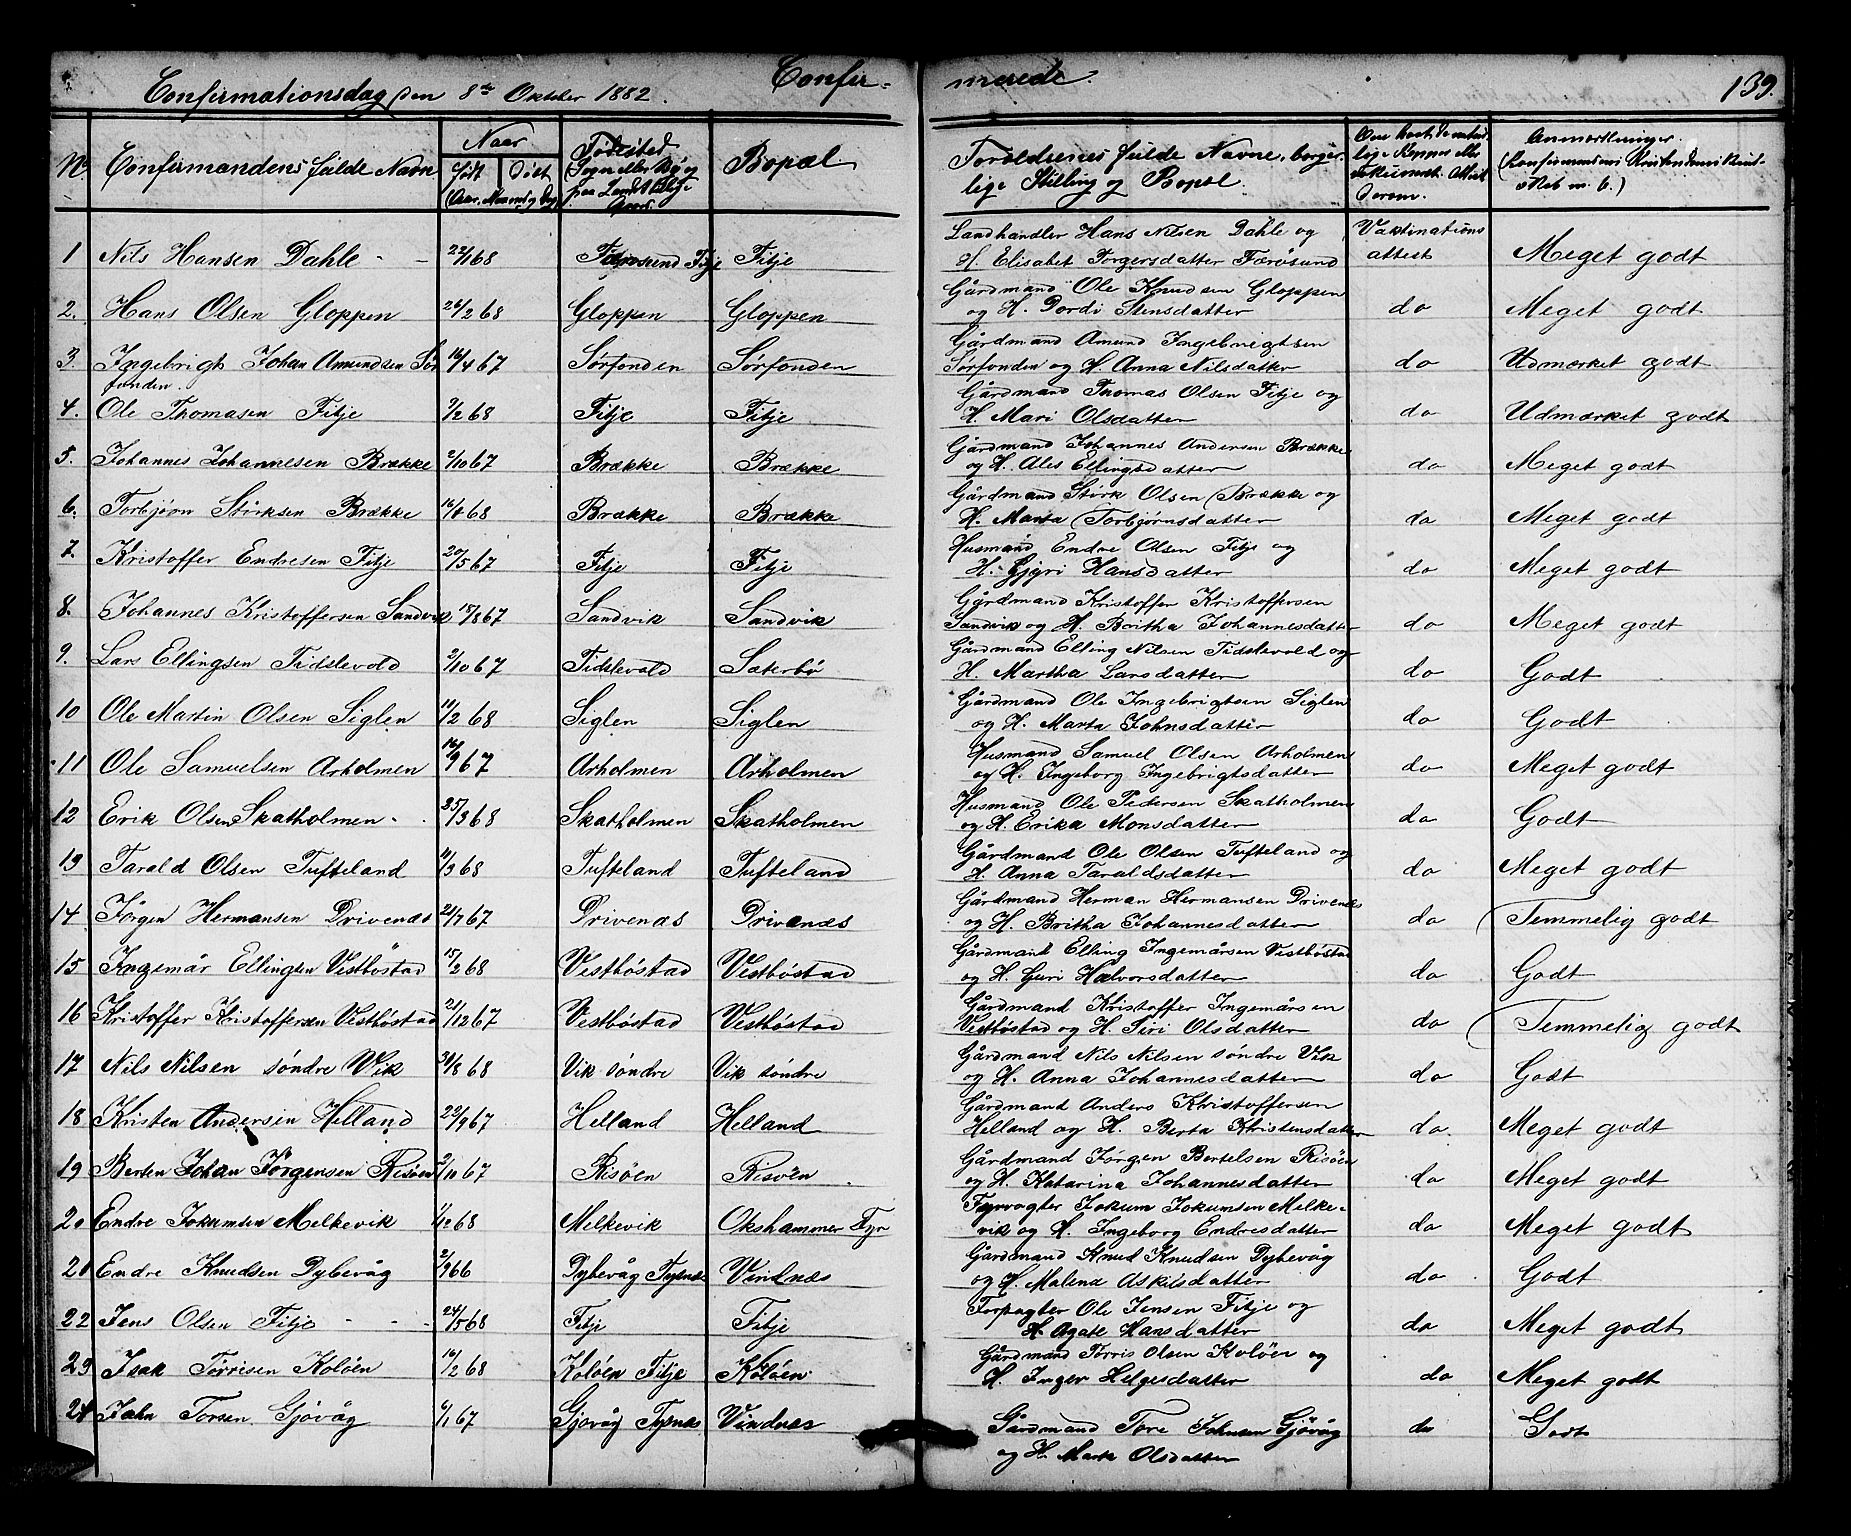 Confirmationsdag den 8de Oktober 1882. Confir- merede 139.
No Confirmandens fulde Navn Naar Født Døbt (Aar, Maaned og Dag) Fødested Sogn eller By og paa Landet tillige Gaard Bopæl Forældrenes fulde Navne, borger- lige Stilling og Bopæl. Anmærkninger
1 Nils Hansen Dahle 22/1 68 Færøsund Fitje Fitje Landhandler Hans Nilsen Dahle og H. Elisabet Torgersdatter Færøsund Vaktinations attest Meget godt
2. Hans Olsen Gloppen 26/2 68 Gloppen Gloppen Gårdmand Ole Knudsen Gloppen og H. Dordi Stensdatter do Meget godt
3. Ingebrigt Johan Amundsen Sørfonden. 16/4 67 Sørfonden Sørfonden Gårdmand Amund Ingebrigtsen Sørfonden og H. Anna Nilsdatter do Udmærket godt
4. Ole Thomasen Fitje 7/2 68 Fitje Fitje Gårdmand Thomas Olsen Fitje og H. Mari Olsdatter do Udmærket godt
5. Johannes Johannesen Brække 2/10 67 Brække Brække Gårdmand Johannes Andersen Brække og H. Ales Ellingsdatter do Meget godt
6. Torbjørn Størksen Brække 68 Brække Brække Gårdmand Størk Olsen Brække og H. Marta Torbjørnsdatter do Meget godt
7. Kristoffer Endresen Fitje 20/5 67 Fitje Fitje Husmand Endre Olsen Fitje og H. Gjøri Hansdatter do Meget godt
8. Johannes Kristoffersen Sandvik 15/8 67 Sandvik Sandvik Gårdmand Kristoffer Kristoffersen Sandvik og H. Britha Johannesdatter do Meget godt
9. Lars Ellingsen Tidslevold 2/10 67 Tidslevold Sæterbø Gårdmand Elling Nilsen Tidslevold og H. Martha Larsdatter do Godt
10 Ole Martin Olsen Siglen 11/2 68 Siglen Siglen Gårdmand Ole Ingebrigtsen Siglen og H. Marta Johnsdatter do Godt
11 Ole Samuelsen Arholmen 16/9 67 Arholmen Arholmen Husmand Samuel Olsen Arholmen og H. Ingeborg Ingebrigtsdatter do Meget godt
12 Erik Olsen Skatholmen 25/3 68 Skatholmen Skatholmen Husmand Ole Pedersen Skatholmen og H. Erika Monsdatter do Godt
13 Tarald Olsen Tufteland 11/3 68 Tufteland Tufteland Gårdmand Ole Olsen Tufteland og H. Anna Taraldsdatter do Meget godt
14. Jørgen Hermansen Drivenæs 21/7 67 Drivenæs Drivenæs Gårdmand Herman Hermansen Drivenæs og H. Britha Johannesdatter do Temmelig godt
15 Ingemår Ellingsen Vestbøstad 15/2 68 Vestbøstad Vestbøstad Gårdmand Elling Ingemårsen Vestbøstad og H. Guri Halvorsdatter do Godt
16 Kristoffer Kristoffersen Vestbøstad 21/12 67 Vestbøstad Vestbøstad Gårdmand Kristoffer Ingemårsen Vestbøstad og H. Siri Olsdatter do Temmelig godt
17 Nils Nilsen søndre Vik 68 Vik søndre Vik søndre Gårdmand Nils Nilsen søndre Vik og H. Anna Johannesdatter do Godt
18 Kristen Andersen Helland 22/9 67 Helland Helland Gårdmand Anders Kristoffersen Helland og H. Berta Kristensdatter do Meget godt
19 Johan Jørgensen Risøen 67 Risøen Risøen Gårdmand Jørgen Bertelsen Risøen og H. Katarina Johannesdatter do Meget godt
20 Endre Jokumsen Melkevik 68 Melkevik Okshammer Fyr Fyrvogter Jokum Jokumsen Melkevik og H. Ingeborg Endresdatter do Meget godt
21 Endre Knudsen Dybevåg 2/9 66 Dybevåg Tysnæs Vindnæs Gårdmand Knud Knudsen Dybevåg og H. Malena Askilsdatter do Godt
22 Jens Olsen Fitje 24/5 68 Fitje Fitje Forpagter Ole Jensen Fitje og H. Agate Hansdatter do Meget godt
23 Isak Tørrisen Koløen 16/2 68 Koløen Fitje Koløen Gårdmand Tørris Olsen Koløen og H. Inger Helgesdatter do Meget godt
24 John Torsen Gjøvåg 6/1 67 Gjøvåg Tysnæs Vindnæs Gårdmand Tore Johnsen Gjøvåg og H. Marta Olsdatter do Godt